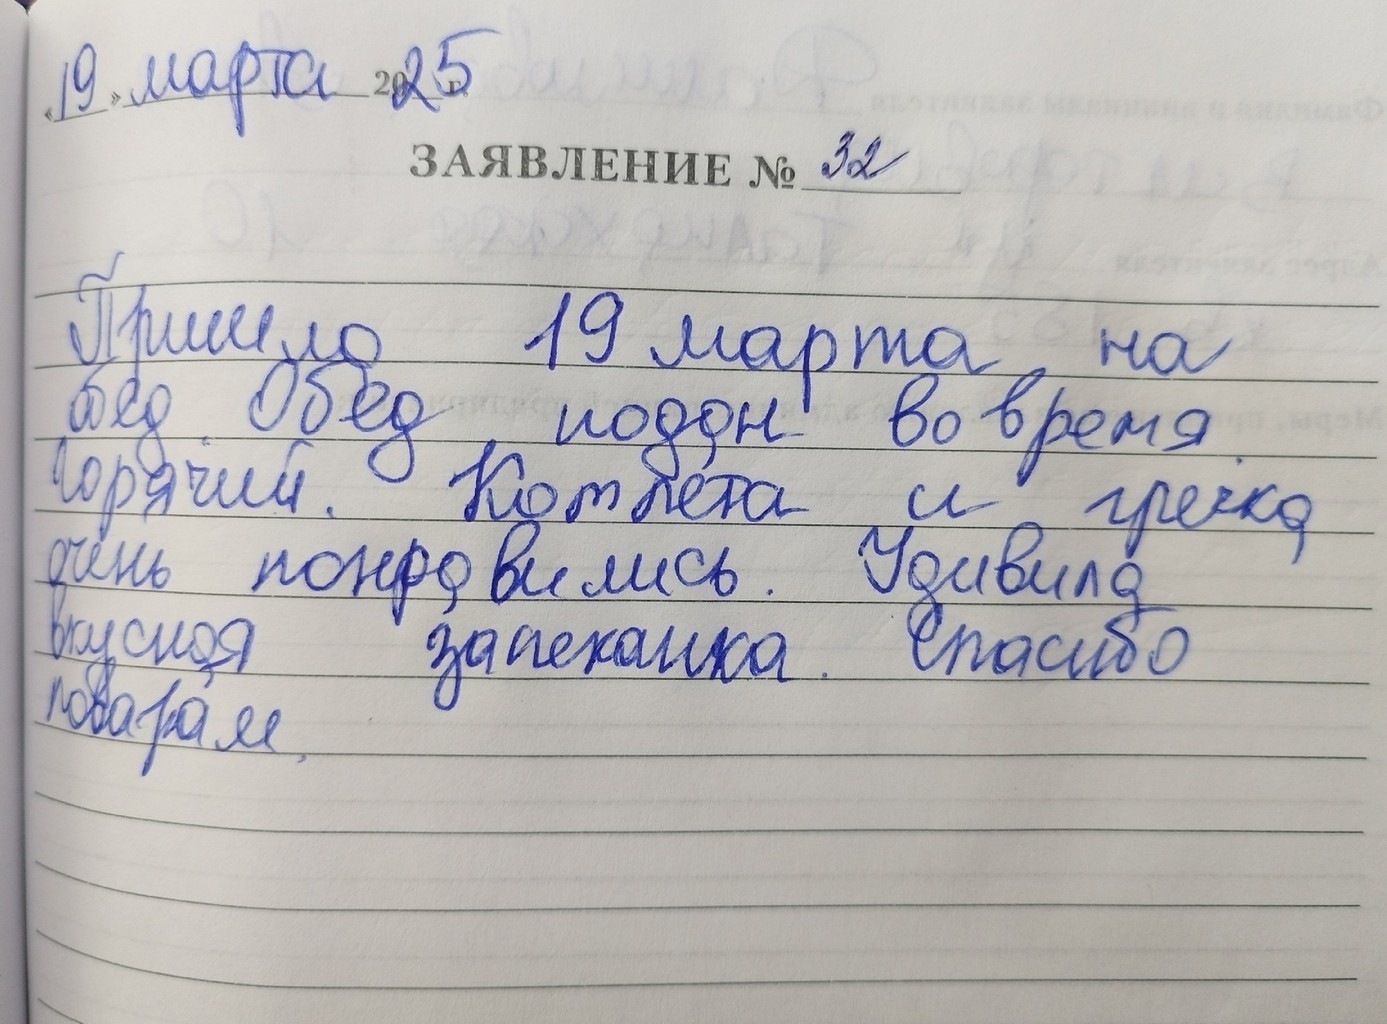 «19» марта 2025 г.
ЗАЯВЛЕНИЕ № 32
Пришла 19 марта на
обед. Обед подан во время.
Горячий. Котлета и гречка
очень понравились. Удивила
вкусная запеканка. Спасибо
поварам.